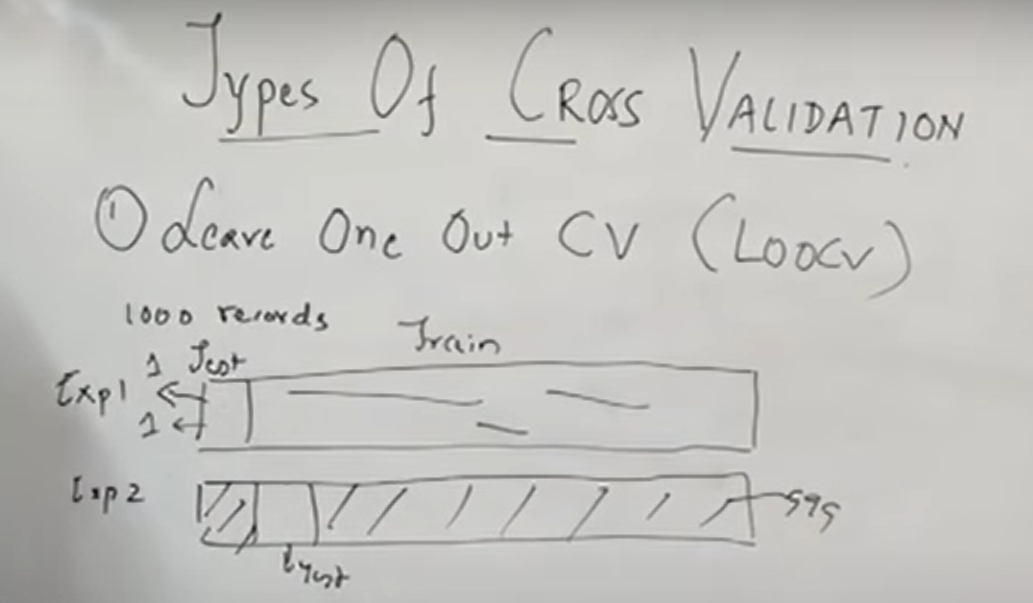 Types Of CROSS VALIDATION
① Leave One Out CV (LOOCV)
1000 records
Train
1 Test
Exp1
1
Exp2
999